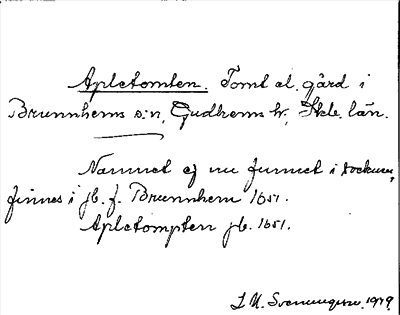 Apletomten. Tomt el. gård i
Brunnhems s:n, Gudhems hr, Skb. län.
Namnet ej nu funnet i socknen,
finnes i jb. f. Brunnhem 1651.
Apletompten jb. 1651.
I. M. Svenungsson. 1949.